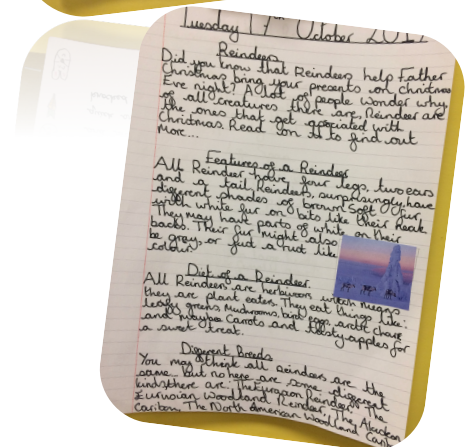 Tuesday 17th October 201
Reindeers
Did you know that Reindeers help Father
Christmas bring your presents on christmas
Eve night? A lot of people wonder why,
of all creatures there are, Reindeer are
the ones that get associated with
Christmas. Read on to find out
more...
Features of a Reindeer
All Reindeer have four legs, two ears
and a tail. Reindeers, surprisingly, have
different shades of brown soft fur
with white fur on bits like their neck
They may have parts of white on their
backs. Their fur might also
be gray, or just a rust like
colour.
Diet of a Reindeer
All Reindeers are herbivores witch means
they are plant eaters. They eat things like:
leafy greens, Mushrooms, bird eggs, arctic chare
and maybe carrots and tasty apples for
a sweet treat.
Different Breeds
You may think all reindeers are the
same but no here are some different
kinds there are. The Eurasion Reindeer, The
Reindeer, The
Caribou, The North American Woodland